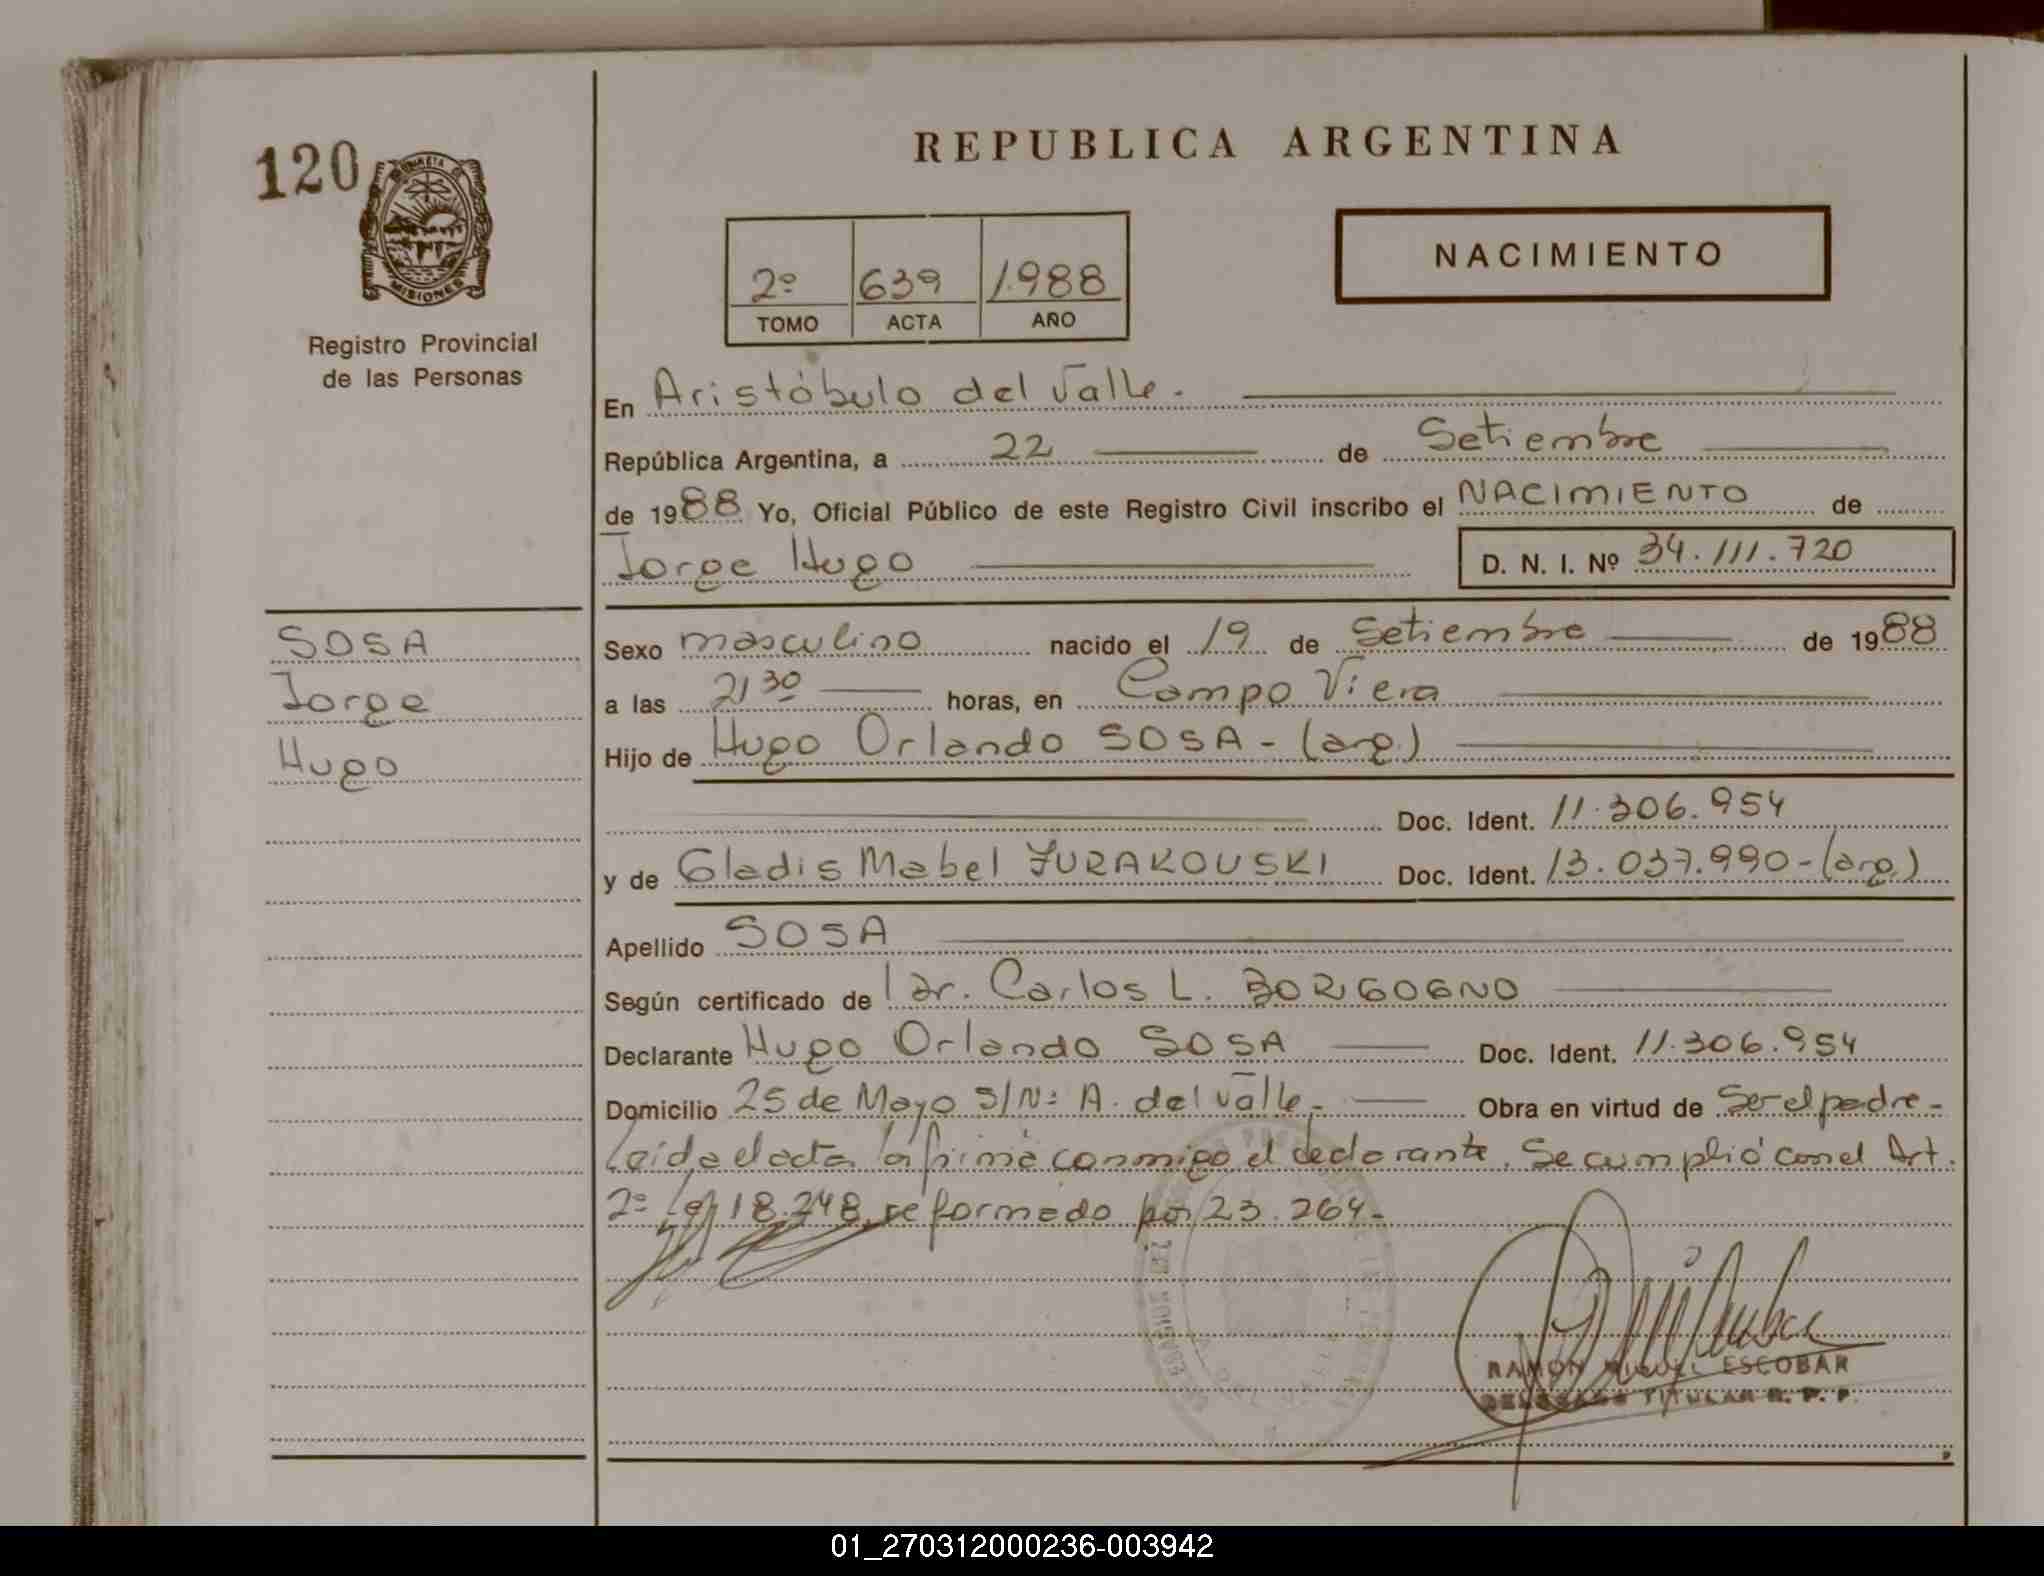 120
MISIONES
Registro Provincial
de las Personas
REPUBLICA ARGENTINA
2º 639 1.988
TOMO ACTA AÑO
NACIMIENTO
En Aristóbulo del Valle.
República Argentina, a 22 de Setiembre
de 1988 Yo, Oficial Público de este Registro Civil inscribo el NACIMIENTO de
Jorge Hugo
D. N. I. Nº 34.111.720
SOSA
Jorge
Hugo
Sexo masculino nacido el 19 de Setiembre de 1988
a las 21 30 horas, en Campo Viera
Hijo de Hugo Orlando SOSA - (arg.)
Doc. Ident. 11.306.954
y de Gladis Mabel ZURAKOUSKI Doc. Ident. 13.037.990-(arg.)
Apellido SOSA
Según certificado de Dr. Carlos L. BORGOGNO
Declarante Hugo Orlando SOSA Doc. Ident. 11.306.954
Domicilio 25 de Mayo S/Nº A. del Valle.- Obra en virtud de Ser el padre-
Leída el acta la firma conmigo el declarante. Se cumplió con el Art.
2º Ley 18.248 reformado por 23.264-
RAMON MIGUEL ESCOBAR
DELEGADO TITULAR R. P. P.
01_270312000236-003942